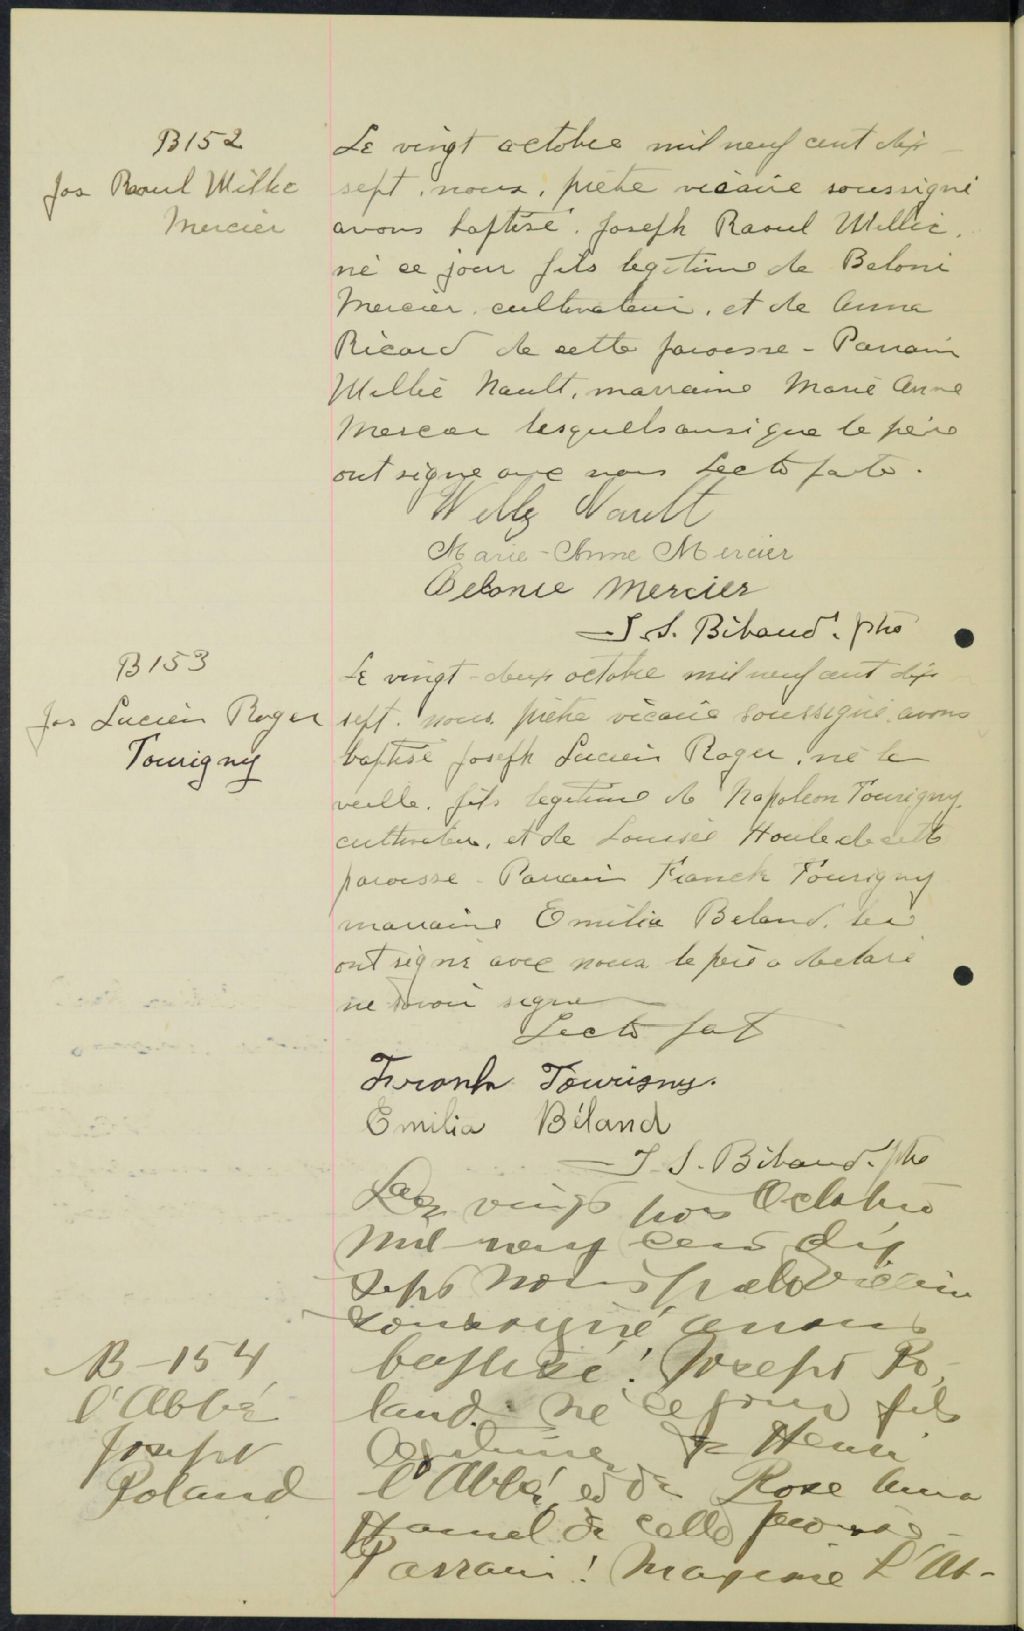 B152
Jos Raoul Willie
Mercier
Le vingt octobre mil neuf cent dix
sept, nous, prêtre vicaire soussigné
avons baptisé, Joseph Raoul Willie,
né ce jour fils légitime de Beloni
Mercier, cultivateur, et de Anna
Ricard de cette paroisse - Parrain
Willie Nault, marraine Marie Anne
Mercier lesquels ainsi que le père
ont signé avec nous Lecto facto.
Willy Nault
Marie-Anne Mercier
Belonie Mercier
J. S. Bibaud, ptre
B153
Jos Lucien Roger
Tourigny
Le vingt-deux octobre mil neuf cent dix
sept, nous prêtre vicaire soussigné, avons
baptisé Joseph Lucien Roger, né la
veille, fils légitime de Napoléon Tourigny,
cultivateur, et de Louisée Houle de cette
paroisse - Parrain Franck Tourigny
marraine Emilia Beland,
ont signé avec nous le père a déclaré
ne savoir signer
Lecto fact
Frank Tourigny.
Emilia Béland
J. S. Bibaud, ptre
B-154
l'Abbé
Joseph
Roland
Le vingt trois Octobre
mil neuf cent dix
sept nous prêtre vicaire
soussigné avons
baptisé! Joseph Ro-
land. né ce jour fils
légitime de Henri
l'Abbé et de Rose Anna
Hamel de cette paroisse -
Parrain! Maxime L'Ab-